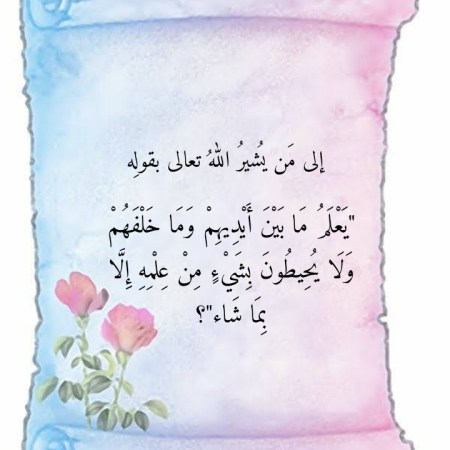 إلى مَن يُشيرُ اللهُ تعالى بقولِه
"يَعْلَمُ مَا بَيْنَ أَيْدِيهِمْ وَمَا خَلْفَهُمْ
وَلَا يُحِيطُونَ بِشَيْءٍ مِنْ عِلْمِهِ إِلَّا
بِمَا شَاء"؟